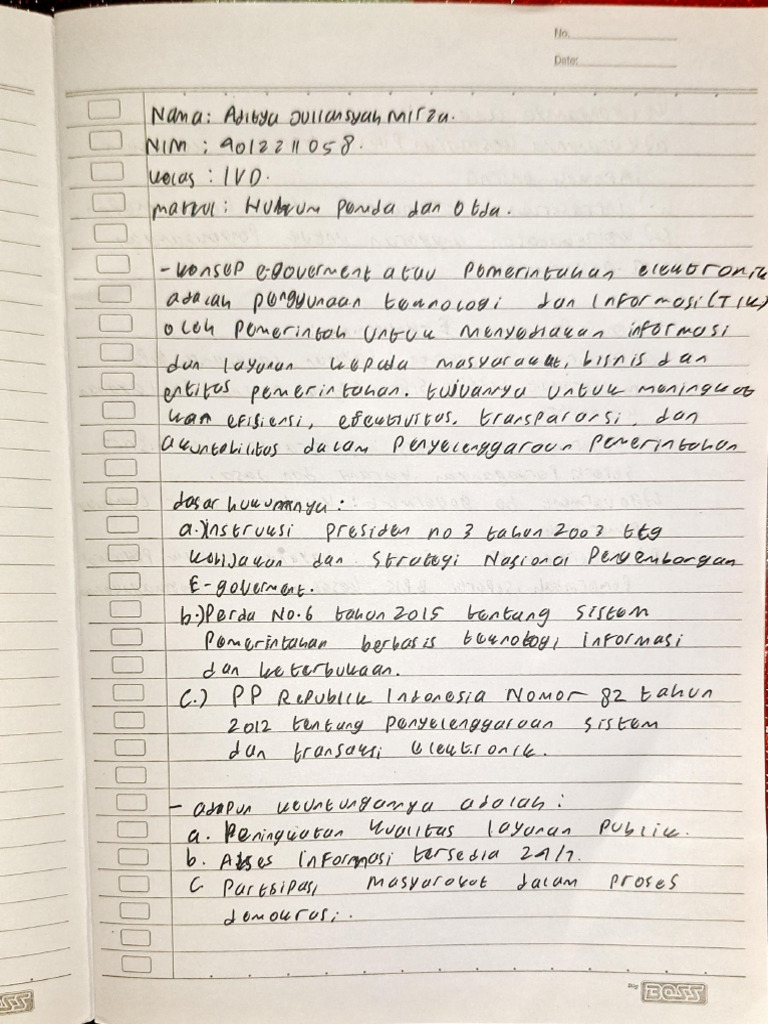 No.
Date:
Nama: Aditya Juliansyah Mirza.
NIM : 4012211058.
Kelas : IVD.
Matkul : Hukum Pemda dan Otda.
- Konsep e-goverment atau Pemerintahan elektronik
adalah penggunaan teknologi dan Informasi (TIK)
oleh Pemerintah untuk menyediakan informasi
dan layanan kepada masyarakat, bisnis dan
entitas pemerintahan. tujuannya untuk meningkat
kan efisiensi, efektivitas, transparansi, dan
akuntabilitas dalam Penyelenggaraan Pemerintahan
dasar hukumnya :
a.) Instruksi Presiden no 3 tahun 2003 ttg
Kebijakan dan Strategi Nasional Pengembangan
E-goverment.
b.) Perda No.6 tahun 2015 tentang sistem
Pemerintahan berbasis teknologi informasi
dan keterbukaan.
C.) PP Republik Indonesia Nomor 82 tahun
2012 tentang Penyelenggaraan sistem
dan transaksi elektronik.
- adapun keuntungannya adalah :
a. Peningkatan kualitas layanan Publik.
b. Akses informasi tersedia 24/7.
C Partisipasi masyarakat dalam proses
demokrasi.
BOSS